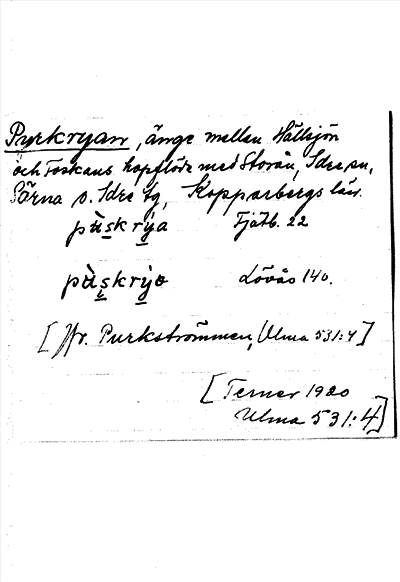 Purkryan, änge mellan Hällsjön
och Foskans hopflöde med Storån, Idre sn,
Särna o. Idre tg, Kopparbergs län.
pùs̱krẏ̱a Fjätb. 22
pùs̱krẏ̱ɵ Lövås 140.
[Jfr. Purkströmmen, Ulma 531:4]
[Terner 1920
Ulma 531:4]